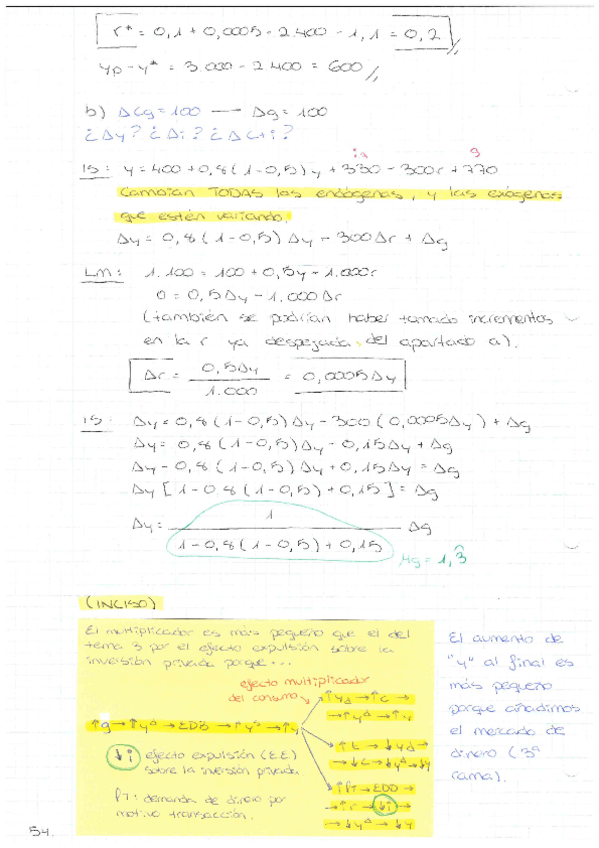 r* = 0,1 + 0,0005 · 2.400 - 1,1 = 0,2 //
yp - y* = 3.000 - 2.400 = 600 //
b) ΔCg = 100 → Δg = 100
¿Δy? ¿Δi? ¿Δc+i?
ia g
IS: y = 400 + 0,8 (1 - 0,5) y + 330 - 300r + 770
Cambian TODAS las endógenas, y las exógenas
que estén variando.
Δy = 0,8 (1 - 0,5) Δy - 300Δr + Δg
LM: 1.100 = 100 + 0,5y - 1.000r
0 = 0,5Δy - 1.000Δr
(también se podrían haber tomado incrementos
en la r ya despejada del apartado a).
Δr = 0,5Δy / 1.000 = 0,0005Δy
IS: Δy = 0,8 (1 - 0,5) Δy - 300 (0,0005Δy) + Δg
Δy = 0,8 (1 - 0,5) Δy - 0,15Δy + Δg
Δy - 0,8 (1 - 0,5) Δy + 0,15Δy = Δg
Δy [1 - 0,8 (1 - 0,5) + 0,15] = Δg
Δy = 1 / 1 - 0,8 (1 - 0,5) + 0,15 Δg
μg = 1,3̂
(INCISO)
El multiplicador es más pequeño que el del
tema 3 por el efecto expulsión sobre la
inversión privada porque...
efecto multiplicador
del consumo
↑g → ↑yᐃ → EDB → ↑yˢ → ↑y
↑yd → ↑c →
→ ↑yᐃ → ↑y
↑t → ↓yd →
→ ↓c → ↓yᐃ → ↓y
↑PT → EDD →
→ ↑r → ↓i →
→ ↓yᐃ → ↓y
↓i efecto expulsión (EE)
sobre la inversión privada
PT: demanda de dinero por
motivo transacción.
El aumento de
"y" al final es
más pequeño
porque añadimos
el mercado de
dinero (3ª
rama).
54.